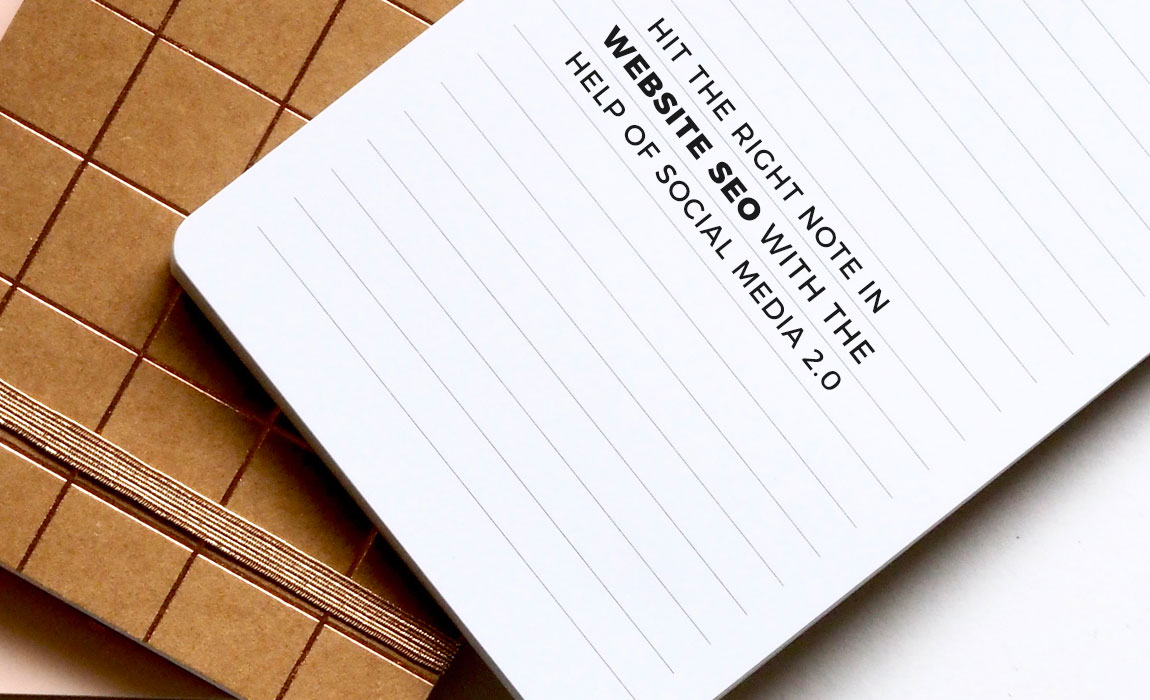 HIT THE RIGHT NOTE IN
WEBSITE SEO WITH THE
HELP OF SOCIAL MEDIA 2.0